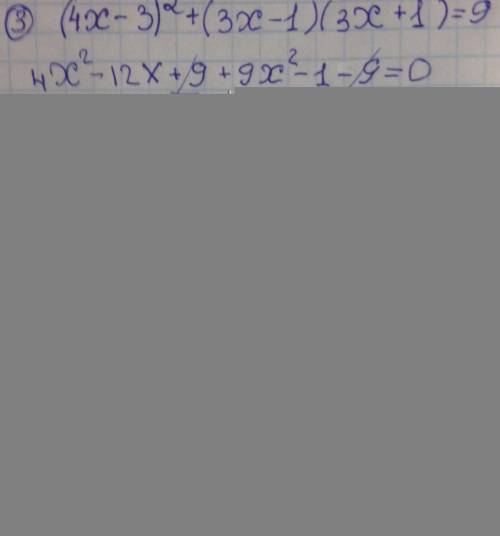 ③ (4x-3)²+(3x-1)(3x+1)=9
4x²-12x+9+9x²-1-9=0